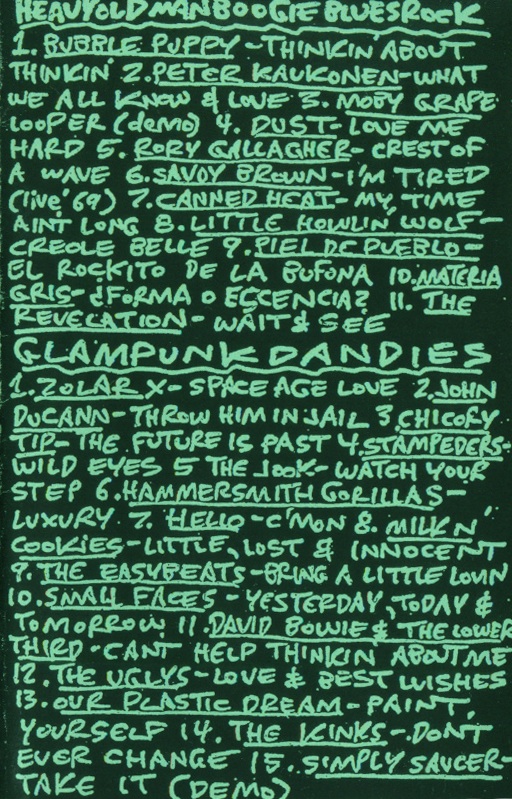 HEAVYOLDMANBOOGIEBLUESROCK
1. BUBBLE PUPPY - THINKIN' ABOUT
THINKIN' 2. PETER KAUKONEN - WHAT
WE ALL KNOW & LOVE 3. MOBY GRAPE
LOOPER (demo) 4. DUST - LOVE ME
HARD 5. RORY GALLAGHER - CREST OF
A WAVE 6. SAVOY BROWN - I'M TIRED
(live '69) 7. CANNED HEAT - MY TIME
AINT LONG 8. LITTLE HOWLIN' WOLF -
CREOLE BELLE 9. PIEL DE PUEBLO -
EL ROCKITO DE LA BUFONA 10. MATERIA
GRIS - ¿FORMA O ECCENCIA? 11. THE
REVELATION - WAIT & SEE
GLAMPUNKDANDIES
1. ZOLAR X - SPACE AGE LOVE 2. JOHN
DUCANN - THROW HIM IN JAIL 3 CHICORY
TIP - THE FUTURE IS PAST 4. STAMPEDERS -
WILD EYES 5 THE LOOK - WATCH YOUR
STEP 6. HAMMERSMITH GORILLAS -
LUXURY 7. HELLO - C'MON 8. MILK N'
COOKIES - LITTLE, LOST & INNOCENT
9. THE EASYBEATS - BRING A LITTLE LOVIN
10. SMALL FACES - YESTERDAY, TODAY &
TOMORROW 11. DAVID BOWIE & THE LOWER
THIRD - CANT HELP THINKIN ABOUT ME
12. THE UGLYS - LOVE & BEST WISHES
13. OUR PLASTIC DREAM - PAINT
YOURSELF 14. THE KINKS - DON'T
EVER CHANGE 15. SIMPLY SAUCER -
TAKE IT (DEMO)